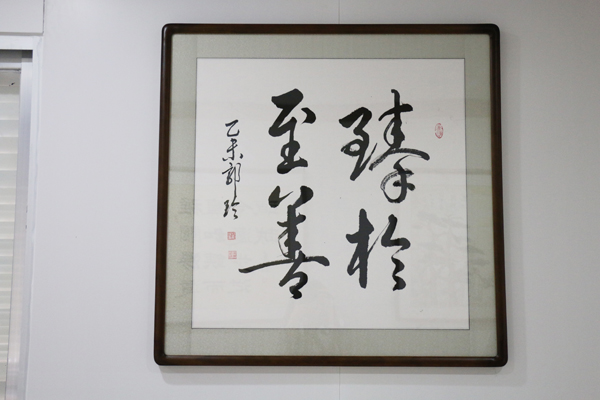 臻於
至善
乙未郭玲